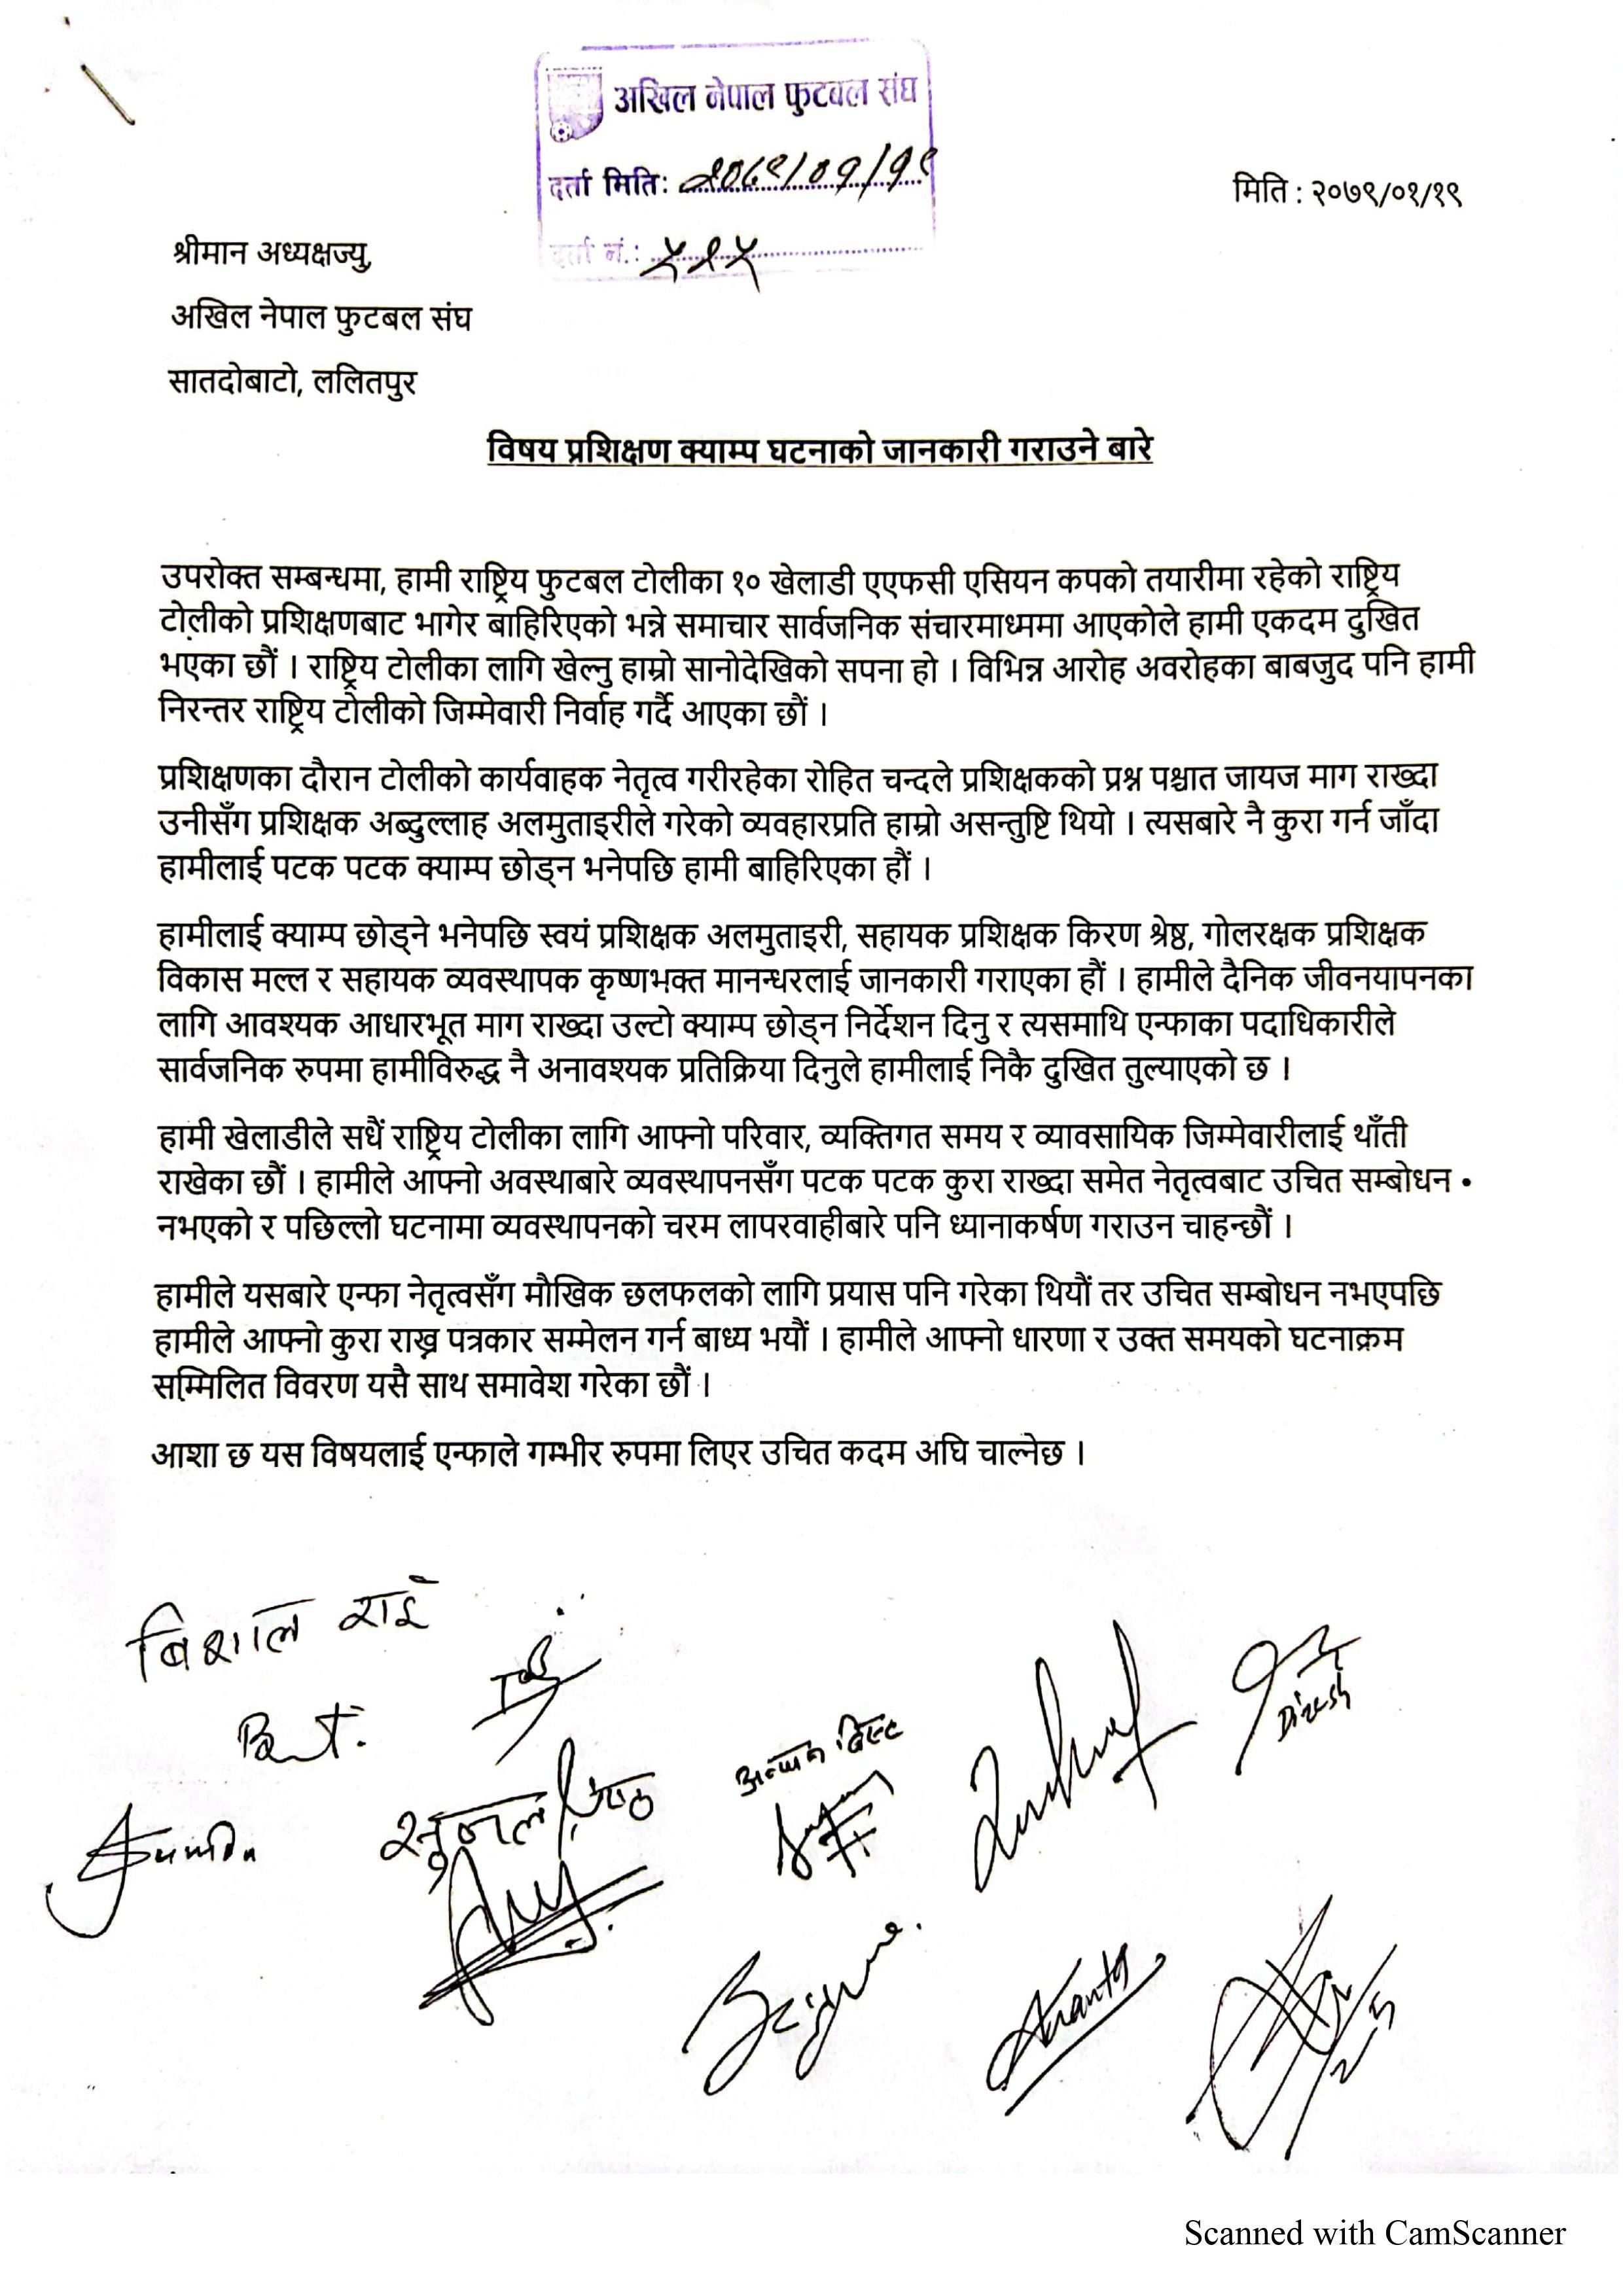 अखिल नेपाल फुटबल संघ
दर्ता मिति: २०७९/०१/१९
दर्ता नं.: ५२५
मिति : २०७९/०१/१९
श्रीमान अध्यक्षज्यु,
अखिल नेपाल फुटबल संघ
सातदोबाटो, ललितपुर
विषय प्रशिक्षण क्याम्प घटनाको जानकारी गराउने बारे
उपरोक्त सम्बन्धमा, हामी राष्ट्रिय फुटबल टोलीका १० खेलाडी एएफसी एसियन कपको तयारीमा रहेको राष्ट्रिय
टोलीको प्रशिक्षणबाट भागेर बाहिरिएको भन्ने समाचार सार्वजनिक संचारमाध्ममा आएकोले हामी एकदम दुखित
भएका छौं । राष्ट्रिय टोलीका लागि खेल्नु हाम्रो सानोदेखिको सपना हो । विभिन्न आरोह अवरोहका बाबजुद पनि हामी
निरन्तर राष्ट्रिय टोलीको जिम्मेवारी निर्वाह गर्दै आएका छौं ।
प्रशिक्षणका दौरान टोलीको कार्यवाहक नेतृत्व गरीरहेका रोहित चन्दले प्रशिक्षकको प्रश्न पश्चात जायज माग राख्दा
उनीसँग प्रशिक्षक अब्दुल्लाह अलमुताइरीले गरेको व्यवहारप्रति हाम्रो असन्तुष्टि थियो । त्यसबारे नै कुरा गर्न जाँदा
हामीलाई पटक पटक क्याम्प छोड्न भनेपछि हामी बाहिरिएका हौं ।
हामीलाई क्याम्प छोड्ने भनेपछि स्वयं प्रशिक्षक अलमुताइरी, सहायक प्रशिक्षक किरण श्रेष्ठ, गोलरक्षक प्रशिक्षक
विकास मल्ल र सहायक व्यवस्थापक कृष्णभक्त मानन्धरलाई जानकारी गराएका हौं । हामीले दैनिक जीवनयापनका
लागि आवश्यक आधारभूत माग राख्दा उल्टो क्याम्प छोड्न निर्देशन दिनु र त्यसमाथि एन्फाका पदाधिकारीले
सार्वजनिक रुपमा हामीविरुद्ध नै अनावश्यक प्रतिक्रिया दिनुले हामीलाई निकै दुखित तुल्याएको छ ।
हामी खेलाडीले सधैं राष्ट्रिय टोलीका लागि आफ्नो परिवार, व्यक्तिगत समय र व्यावसायिक जिम्मेवारीलाई थाँती
राखेका छौं । हामीले आफ्नो अवस्थाबारे व्यवस्थापनसँग पटक पटक कुरा राख्दा समेत नेतृत्वबाट उचित सम्बोधन
नभएको र पछिल्लो घटनामा व्यवस्थापनको चरम लापरवाहीबारे पनि ध्यानाकर्षण गराउन चाहन्छौं ।
हामीले यसबारे एन्फा नेतृत्वसँग मौखिक छलफलको लागि प्रयास पनि गरेका थियौं तर उचित सम्बोधन नभएपछि
हामीले आफ्नो कुरा राख्न पत्रकार सम्मेलन गर्न बाध्य भयौं । हामीले आफ्नो धारणा र उक्त समयको घटनाक्रम
सम्मिलित विवरण यसै साथ समावेश गरेका छौं ।
आशा छ यस विषयलाई एन्फाले गम्भीर रुपमा लिएर उचित कदम अघि चाल्नेछ ।
बिशाल राई
Dinesh
Ananta
Scanned with CamScanner